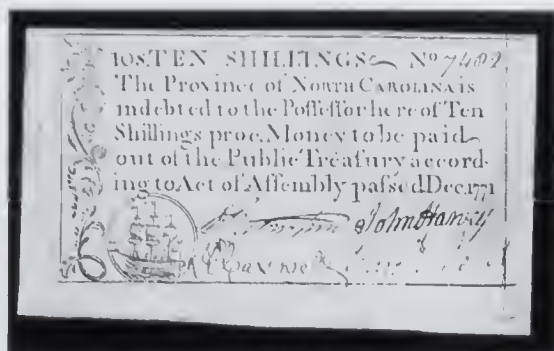 10s. TEN SHILLINGS No 7482
The Province of NORTH CAROLINA is
indebted to the Poſſeſſor hereof Ten
Shillings proc. Money to be paid
out of the Public Treaſury accord-
ing to Act of Aſſembly paſsed Dec. 1771
John Harvey